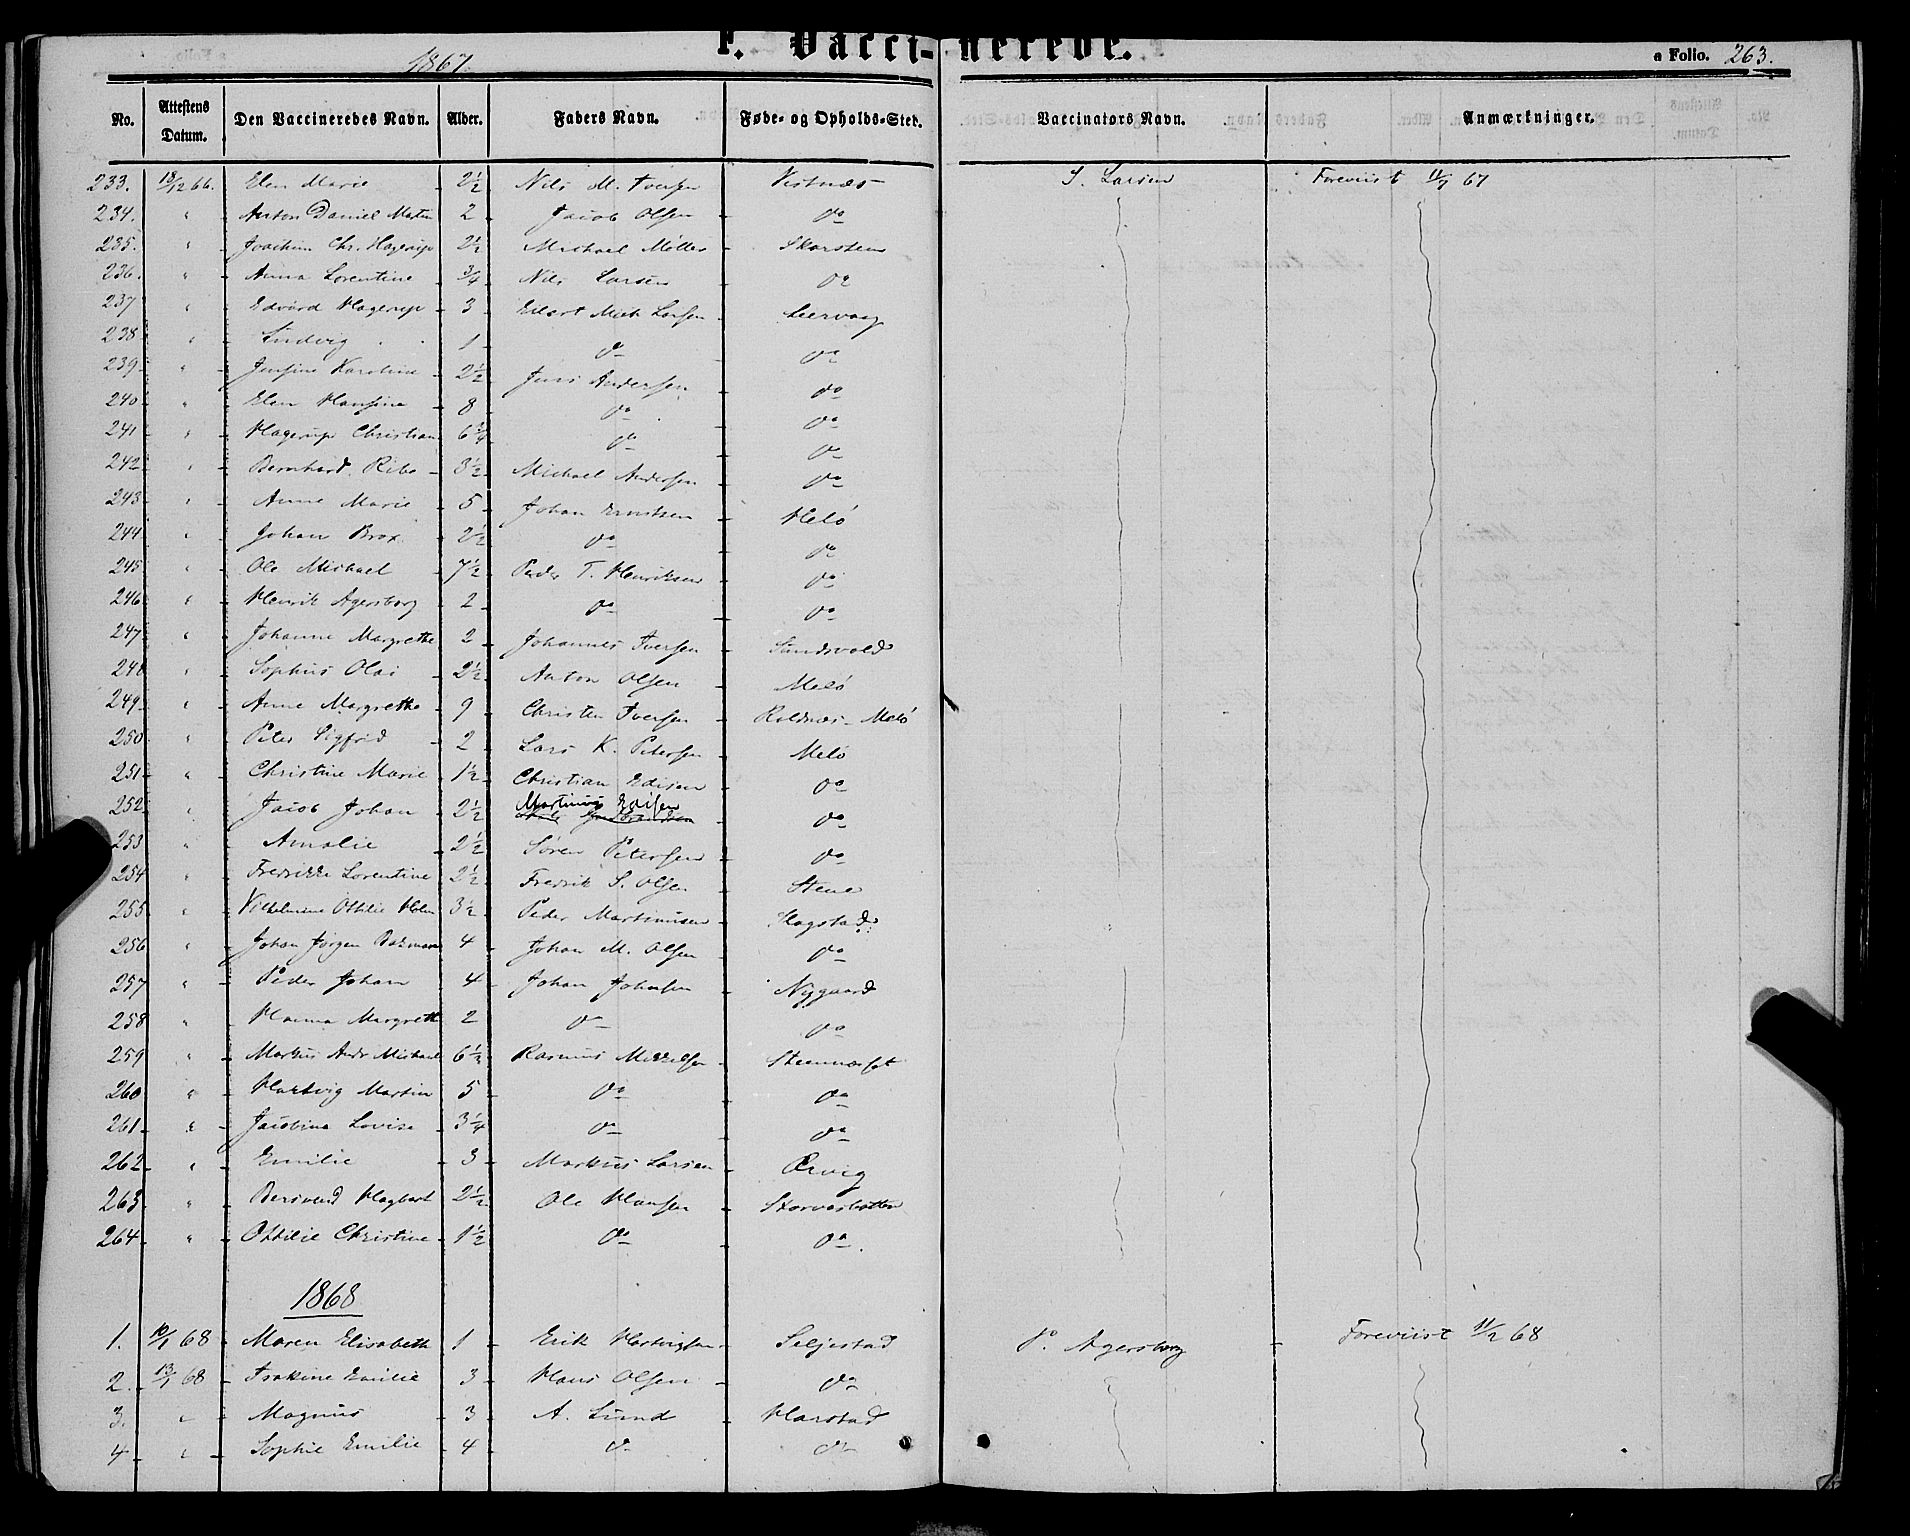 F. Vaccinerede.
1867.
a Folio. 263.
No. Attestens Datum. Den Vaccineredes Navn. Alder. Faders Navn. Føde- og Opholds-Sted. Vaccinators Navn. Anmærkninger.
233. 18/12 66. Elen Marie 2½ Nils M. Iversen Vestnæs S. Larsen Foreviist 11/7 67
234. " Anton Daniel Matin 2 Jacob Olsen do
235. " Joachim Chr. Hagerup 2½ Michael Møller Skarstein
236. " Anna Lorentine ¾ Nils Larsen do
237 " Edvard Hagerup 3 Edvart Mich Larsen Leervaag
238 " Ludvig 1 do do
239 " Jensine Karoline 2½ Jens Andersen do
240 " Elen Hansine 8 do do
241 " Hagerup Christian 6¾ do do
242 " Bernhard Ribe 3½ Michael Andersen do
243 " Anne Marie 5 Johan Erntsen Melö
244 " Johan Brox 2½ do do
245 " Ole Michael 7½ Peder T. Henriksen do
246 " Henrik Agersborg 2 do do
247 " Johanne Margrethe 2 Johannes Iversen Sundsvold
248 " Sophus Olai 2½ Anton Olsen Melö
249 " Anne Margrethe 9 Christen Iversen Roldnæs - Melö
250 " Peter Sigfrid 2 Lars K. Petersen Melö
251 " Christine Marie 1½ Christian Edisen do
252 " Jacob Johan 2½ Martinus Edisen do
253 " Amalie 2½ Sören Petersen do
254 " Fredrikke Lorentine 2½ Fredrik S. Olsen Stene
255 " Vilhelmine Ottilie Holm 3½ Peder Martinusen Hagstad
256 " Johan Jørgen 4 Johan M. Olsen do
257 " Peder Johan 4 Johan Johnsen Nygaard
258 " Hanna Margreth 2 do do
259 " Markus Andr Michael 6½ Rasmus Mikkelsen
260 " Hartvig Martin 5 do do
261 " Jacobina Lovise 3¼ do do
262 " Emilie 3 Markus Larsen Ervig
263 " Hagbart 2½ Ole Hansen Storvasbotten
264 " Ottilie Christine 1½ do do
1868
1. 10/1 68 Maren Elisabeth 1 Erik Hartvigsen Seljestad P. Agersborg Foreviist 11/2 68
2. 13/1 68 Trakine Emilie 3 Hans Olsen do
3. " Magnus 3 A. Lund Harstad
4 " Sophie Emilie 4 do do